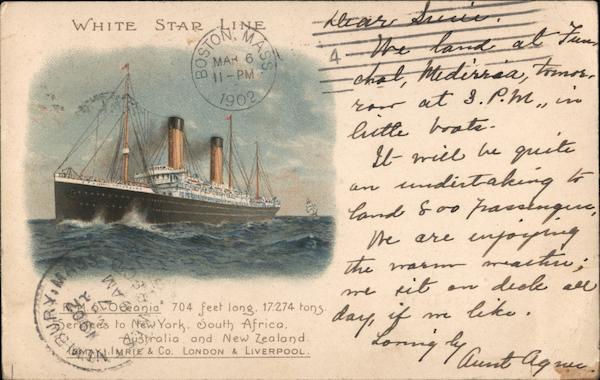 WHITE STAR LINE
BOSTON, MASS
MAR 6
11-PM
1902
4
Dear Susie.
We land at Fun-
chal, Medirria, tomor-
row at 3. P.M., in
little boats.
It will be quite
an undertaking to
land 800 passengers,
We are enjoying
the warm weather;
we sit on deck all
day, if we like.
Lovingly
Aunt Agnes
"Oceanic" 704 feet long, 17.274 tons.
Services to New York, South Africa,
Australia and New Zealand.
ISMAY, IMRIE & Co. LONDON & LIVERPOOL.
BURY, MASS